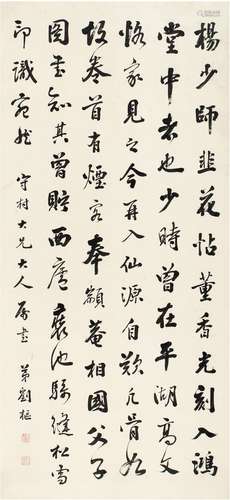 楊少師韭花帖董香光刻入鴻
堂中者也少時曾在平湖高文
恪家見之今再入仙源自欺凡骨如
故卷首有煙客奉顓菴相國父子
圖書知其曾貯西廬褱池騎縫松雪
印識宛然
守村大兄大人屬書
弟劉樞